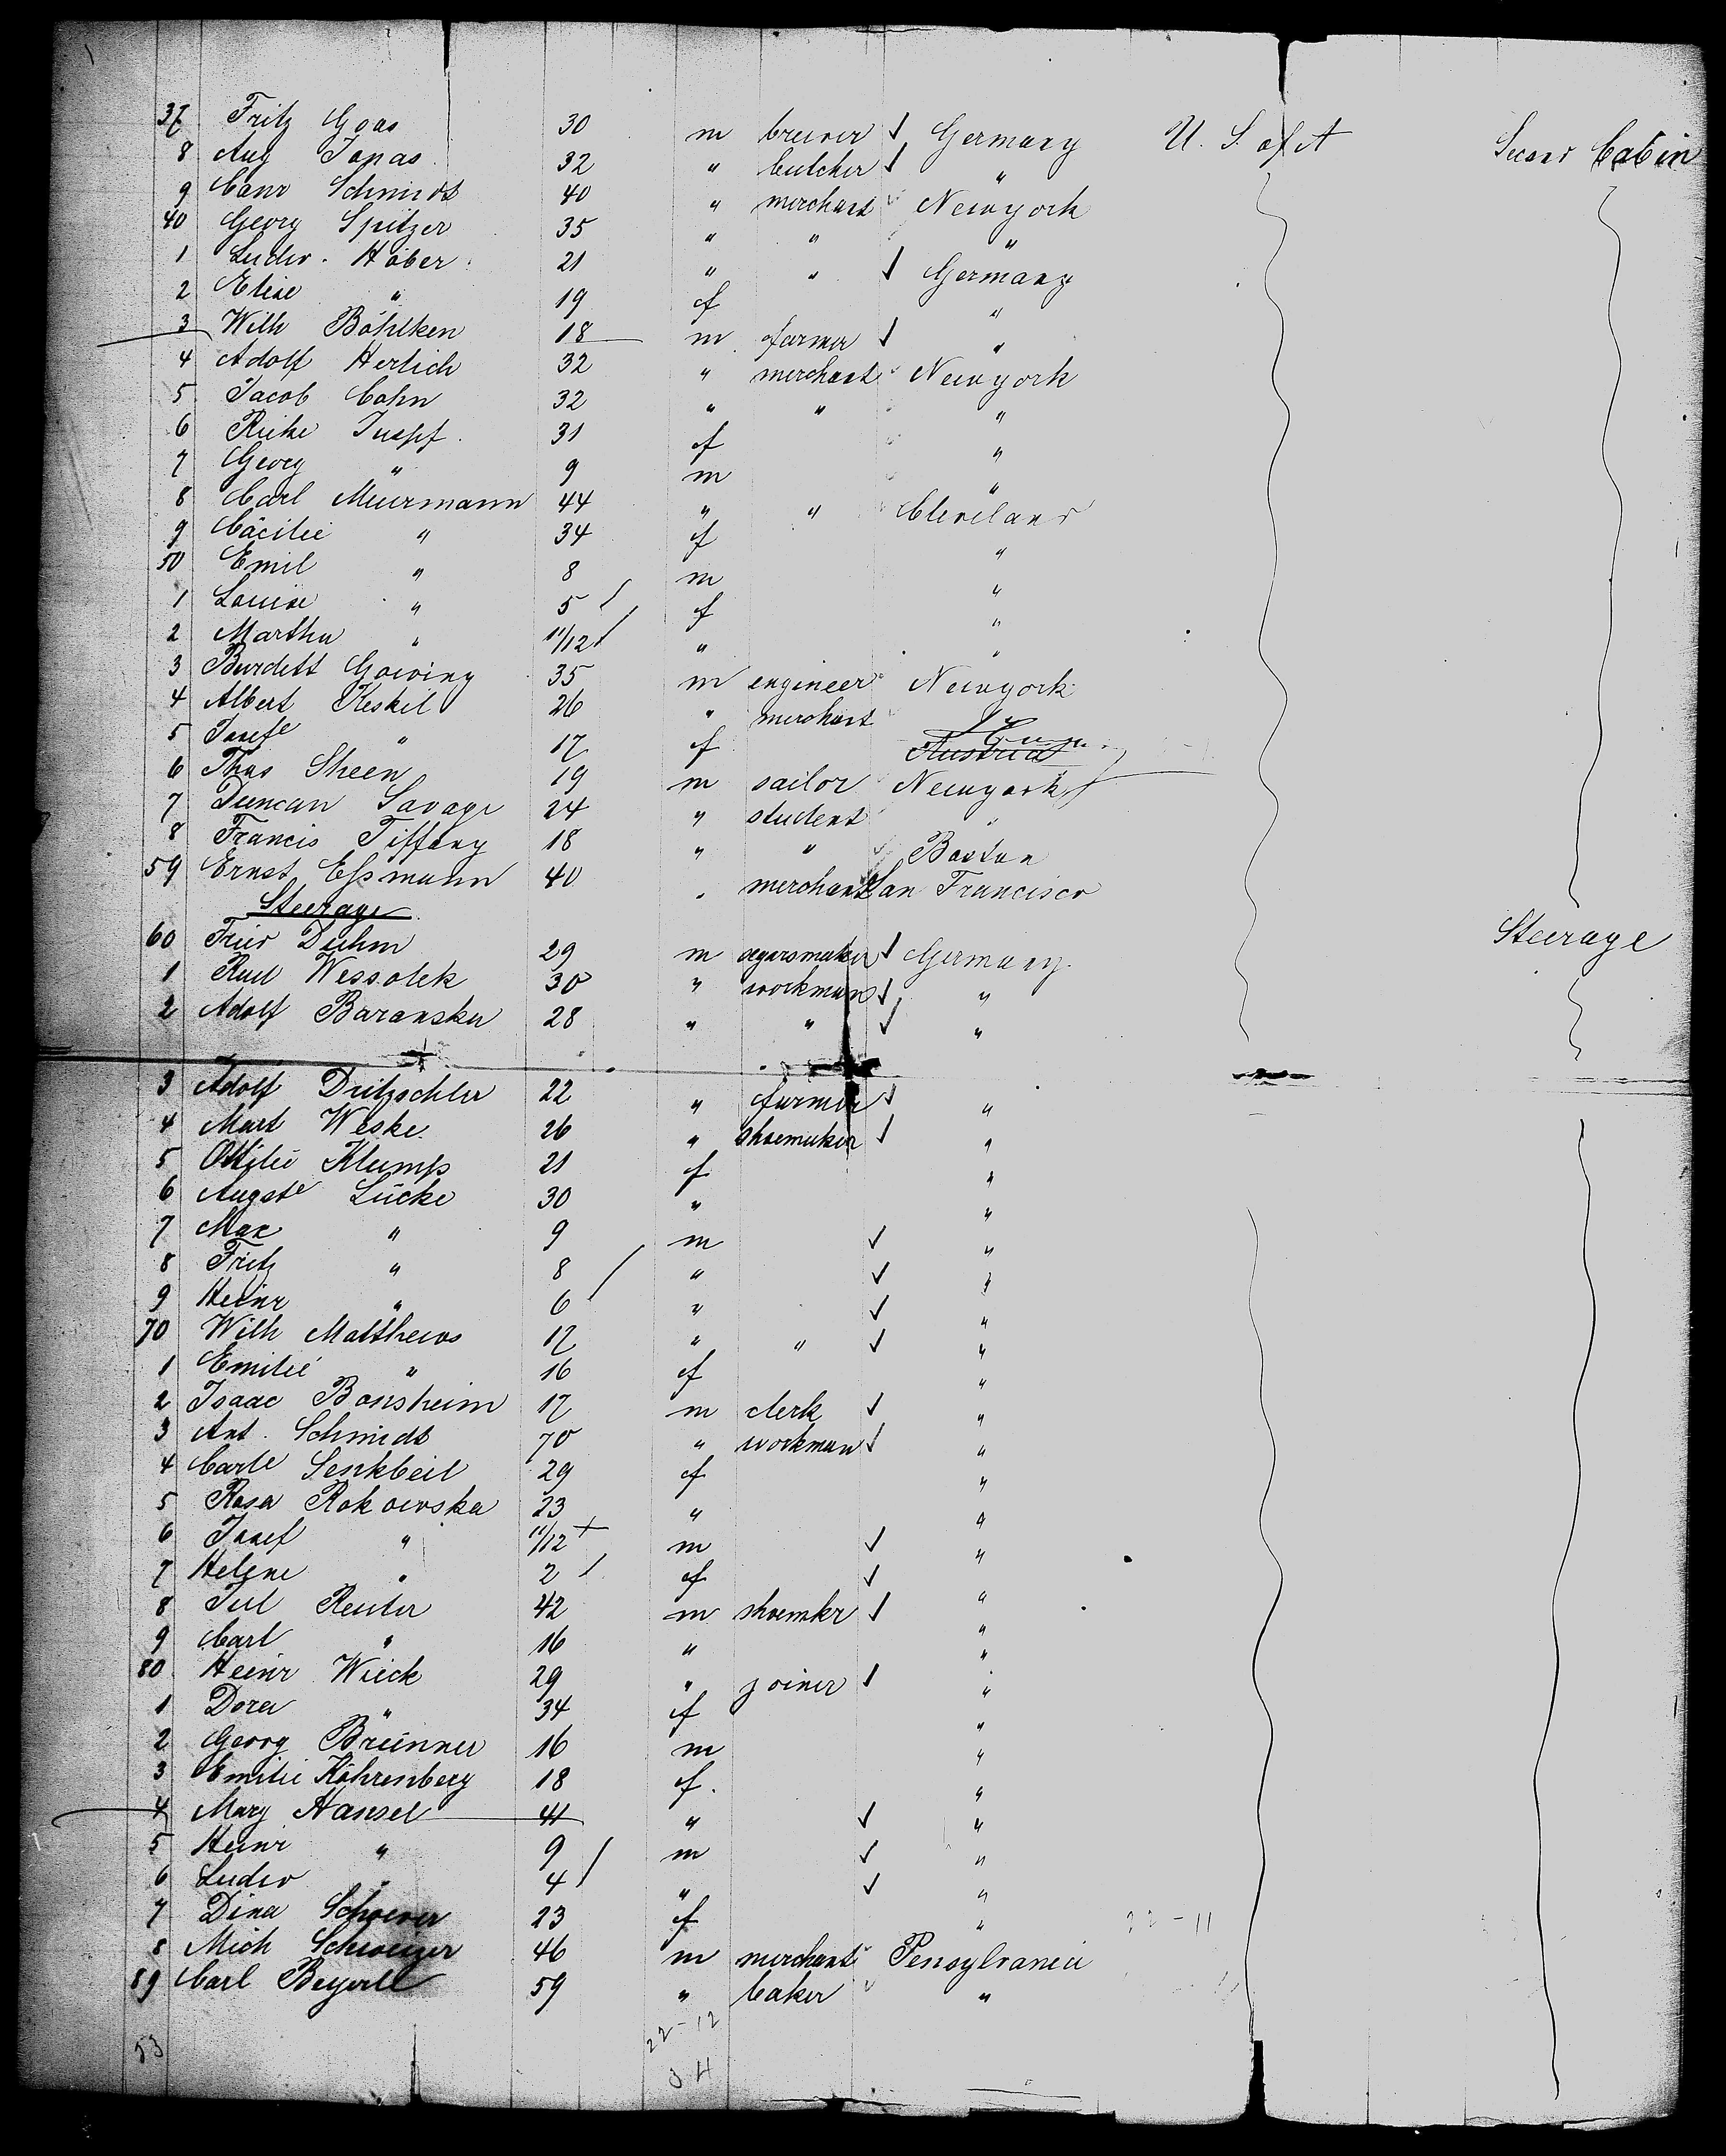 37 Fritz Goas 30 m brewer ✓ Germany U. S. of A Second Cabin
8 Aug Jonas 32 " butcher ✓ "
9 Conr Schmidt 40 " merchant Newyork
40 Georg Spitzer 35 " " "
1 Ludw. Höber 21 " " ✓ Germany
2 Elise " 19 f "
3 Wilh Böhlken 18 m farmer ✓ "
4 Adolf Herlich 32 " merchant Newyork
5 Jacob Cohn 32 " " "
6 Rieke 31 f "
7 Georg " 9 m "
8 Carl Meiermann 44 " " Cleveland
9 Cäcilie " 34 f "
50 Emil " 8 m "
1 Louise " 5 / f "
2 Martha " 11/12 / " "
3 Burdett Gowing 35 m engineer Newyork
4 Albert Keskel 26 " merchant
5 Josefe " 17 f Austria
6 Thos Sheen 19 m sailor Newyork
7 Duncan Savage 24 " student "
8 Francis Tiffany 18 " " Boston
59 Ernst Eßmann 40 " merchant San Francisco
Steerage
60 Fried Duhm 29 m segarsmaker ✓ Germany Steerage
1 Wessolek 30 " workman ✓ "
2 Adolf Baranska 28 " " ✓ "
3 Adolf Dritzschler 22 " farmer ✓ "
4 Mart Weske 26 " shoemaker ✓ "
5 Ottilie Klump 21 f "
6 Auguste Lücke 30 " "
7 Max " 9 m ✓ "
8 Fritz " 8 / " ✓ "
9 Heinr " 6 / " ✓ "
70 Wilh Matthews 17 " " ✓ "
1 Emilie " 16 f "
2 Isaac Bonsheim 17 m clerk ✓ "
3 Ant. Schmidt 70 " workman ✓ "
4 Carle Senkbeil 29 f "
5 Rosa Rokowska 23 " "
6 Josef " 11/12 + m ✓ "
7 Helene " 2 / f ✓ "
8 Jul Reuter 42 m shoemkr ✓ "
9 Carl " 16 " "
80 Heinr Wieck 29 " joiner ✓ "
1 Dora " 34 f "
2 Georg Brünner 16 m "
3 Emilie Köhrenberg 18 f. "
4 Mary Hansel 41 " ✓ "
5 Heinr " 9 / m ✓ "
6 Ludw " 4 / " ✓ "
7 Dina 23 f " 22-11
8 Mich Schweizer 46 m merchant Pensylvania
89 Carl Beyerle 59 " baker "
53 22-12
34